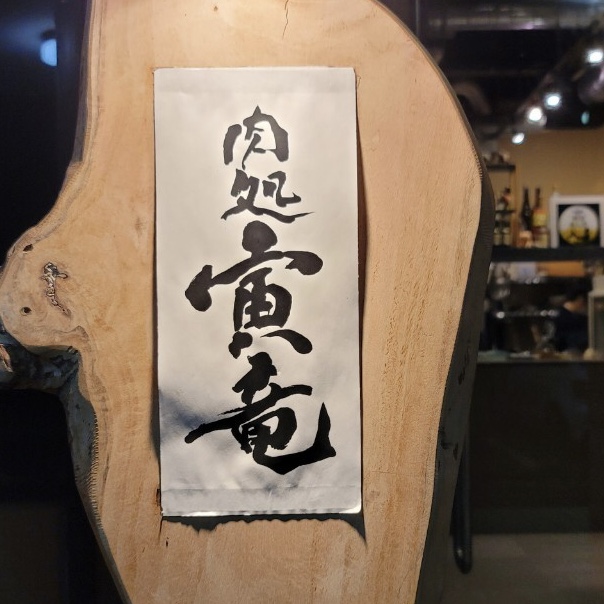 肉処
寅竜